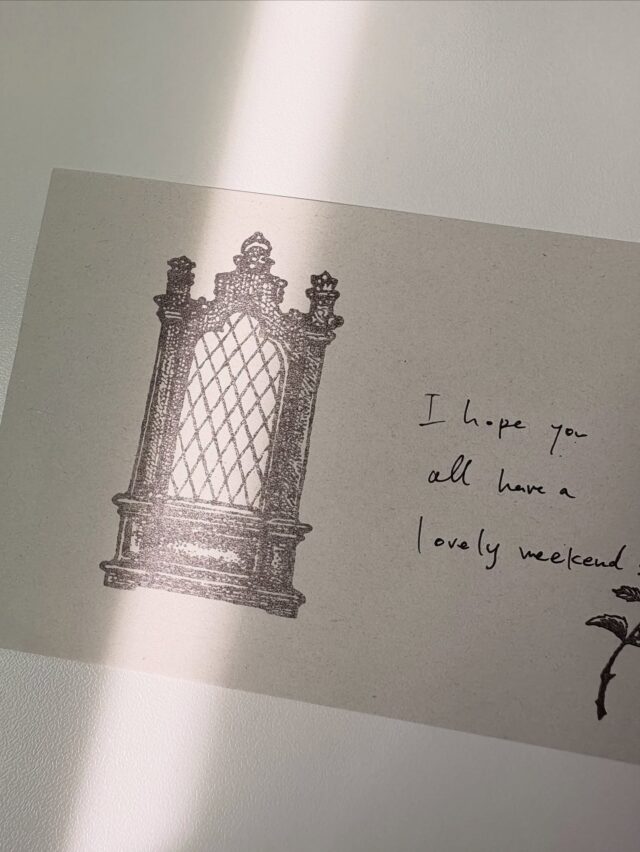 I hope you
all have a
lovely weekend